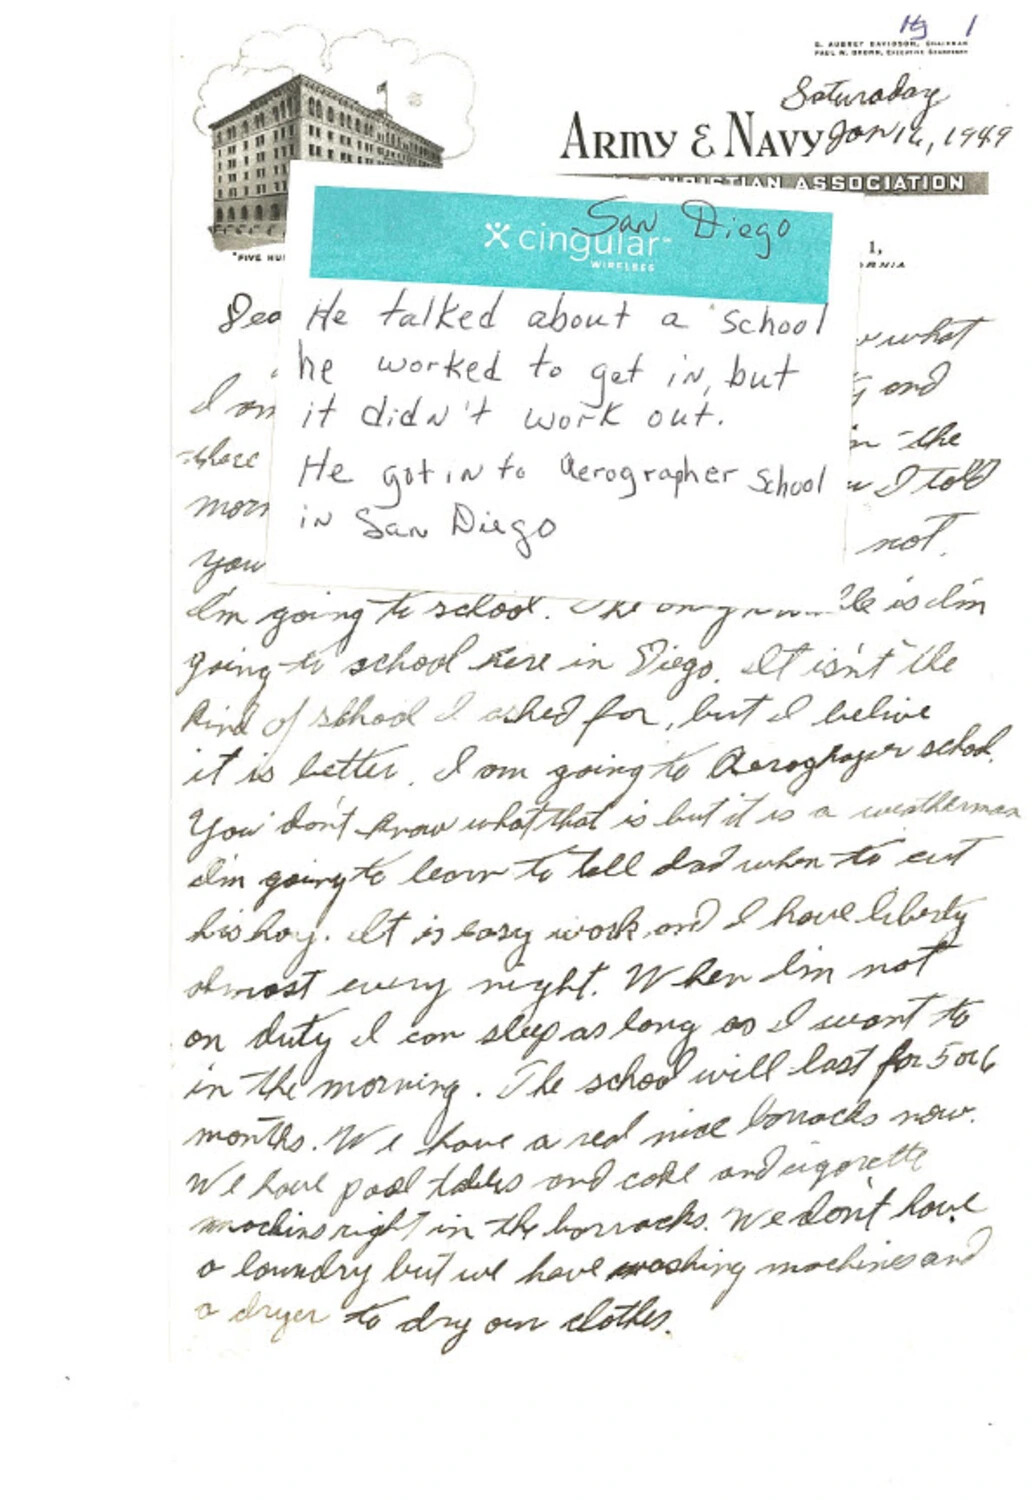 Hg 1
G. AUBREY DAVIDSON, CHAIRMAN
PAUL W. BROWN, EXECUTIVE SECRETARY
Saturday
ARMY & NAVY Jan 16, 1949
CHRISTIAN ASSOCIATION
San Diego
cingular
WIRELESS
1,
"FIVE HU
ORNIA
Dea
He talked about a school
he worked to get in, but
it didn't work out.
He got in to Aerographer School
in San Diego
what
I am and
there in the
morn I told
you not.
I'm going to school. The only is I'm
going to school here in Diego. It isn't the
kind of school I asked for, but I belive
it is better. I am going to Aerographer school.
You don't know what that is but it is a weatherman
I'm going to learn to tell dad when to cut
his hay. It is easy work and I have liberty
almost every night. When I'm not
on duty I can sleep as long as I want to
in the morning. The school will last for 5 or 6
months. We have a real nice barracks now.
We have pool tables and coke and cigarette
machins right in the barracks. We don't have
a laundry but we have washing machines and
a dryer to dry our clothes.